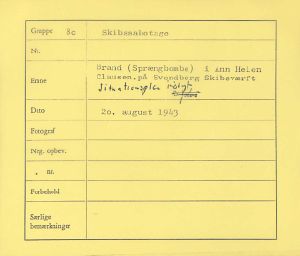 Gruppe 8c Skibssabotage
Nr.
Emne Brand (Sprængbombe) i Ann Helen
Clausen.på Svendborg Skibsværft
Situationsplan
Dato 20. august 1943
Fotograf
Neg. opbev.
. nr.
Forbehold
Særlige
bemærkninger